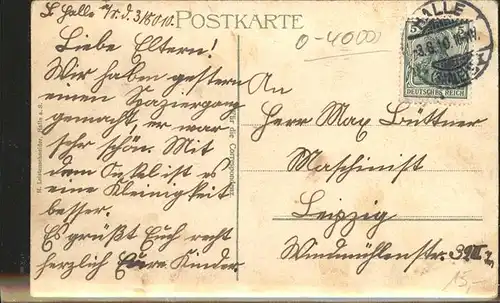 Halle a/S. d. 3/8 010.
POSTKARTE
0-40000
Liebe Eltern!
Wir haben gestern
einen Spaziergang
gemacht, er war
sehr schön. Mit
dem Onkel ist es
eine Kleinigkeit
besser.
Es grüßt Euch recht
herzlich Eure Kinder
Für die Correspondenz.
HALLE
(SAALE)
5
DEUTSCHES REICH
An
Herrn Max Büttner
Maschinist
Leipzig
Windmühlenstr. 39III
15.-